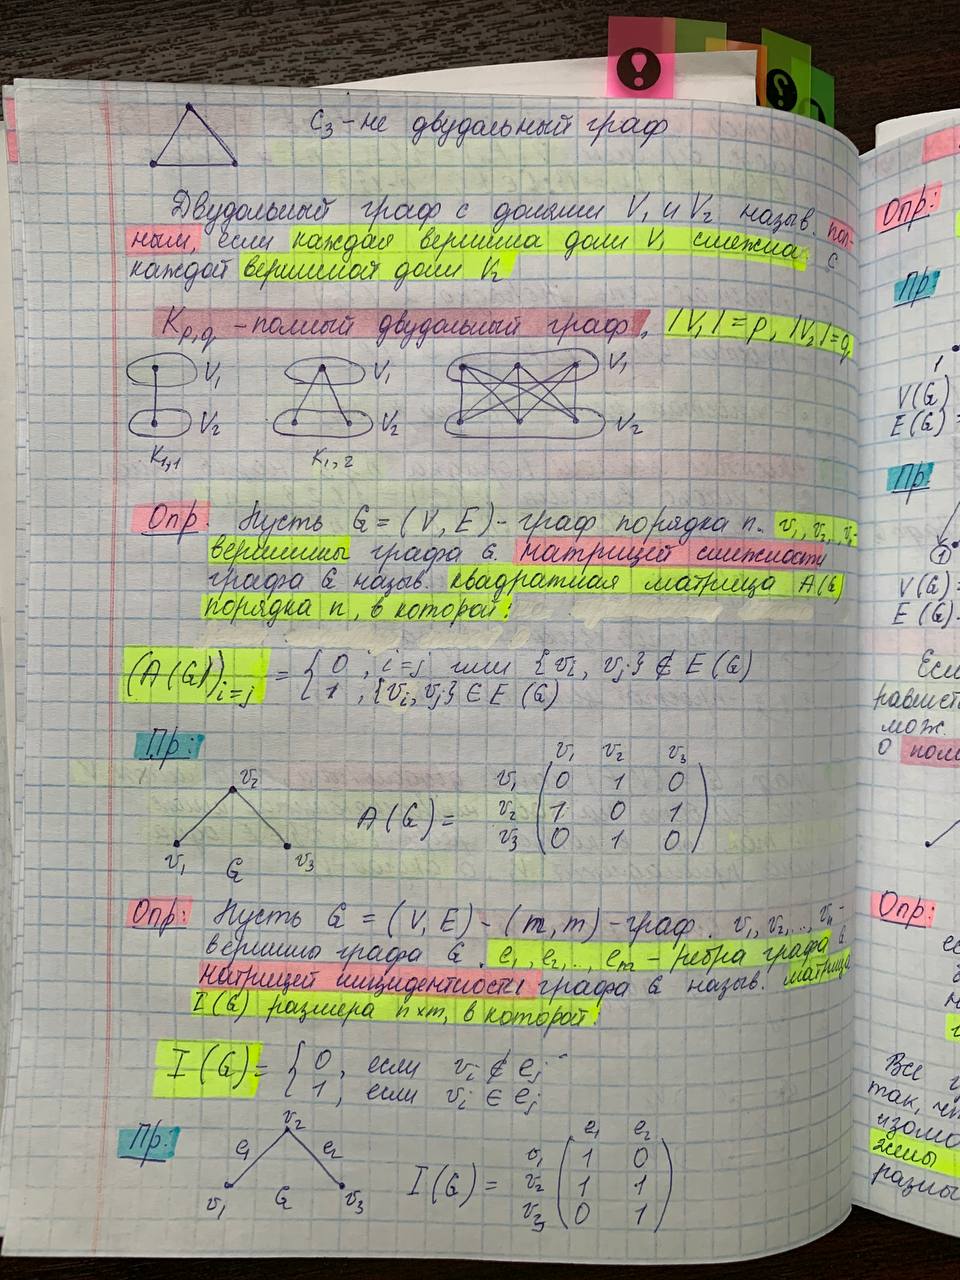 C₃ - не двудольный граф
Двудольный граф с долями V₁ и V₂ назыв. пол-
ным, если каждая вершина доли V₁ смежная с
каждой вершиной доли V₂
K_{p,q} - полный двудольный граф, |V₁| = p, |V₂| = q
V₁ V₁ V₁
V₂ V₂ V₂
K₁,₁ K₁,₂
Опр: Пусть G = (V, E) - граф порядка n. v₁, v₂, .., vₙ -
вершины графа G. Матрицей смежности
графа G назыв. квадратная матрица A(G)
порядка n, в которой:
(A(G))_{i=j} = { 0 , i=j или {vᵢ, vⱼ} ∉ E(G)
1 , {vᵢ, vⱼ} ∈ E(G)
Пр:
v₂
v₁ v₃
G
v₁ v₂ v₃
A(G) = v₁ 0 1 0
v₂ 1 0 1
v₃ 0 1 0
Опр: Пусть G = (V, E) - (m, m) - граф. v₁, v₂, .., vₙ -
вершины графа G. e₁, e₂, .., eₘ - рёбра графа G.
матрицей инцидентности графа G назыв. матрица
I(G) размера n×m, в которой:
I(G) = { 0 , если vᵢ ∉ eⱼ
1 , если vᵢ ∈ eⱼ
Пр:
v₂
e₁ e₂
v₁ G v₃
e₁ e₂
I(G) = v₁ 1 0
v₂ 1 1
v₃ 0 1
Опр:
Пр:
1
V(G)
E(G) =
Пр:
1
V(G) =
E(G) -
Если
мож.
О
Опр:
Все
так,
разны